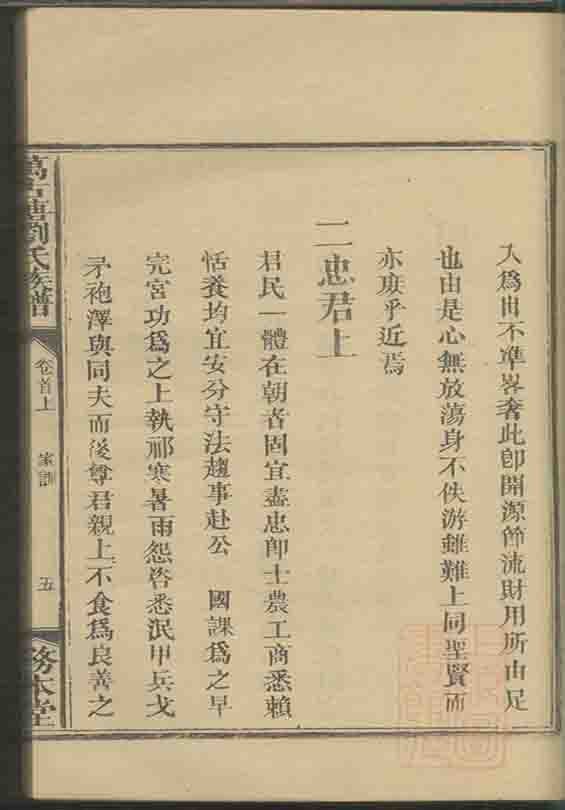 入爲出不準畧奢此卽開源節流財用所由足
也由是心無放蕩身不佚游雖難上同聖賢而
亦庶乎近焉
二忠君上
君民一體在朝者固宜盡忠卽士農工商悉賴
恬養均宜安分守法趨事赴公 國課爲之早
完宮功爲之上執祁寒暑雨怨咨悉泯甲兵戈
矛袍澤與同夫而後尊君親上不食爲良善之
萬石塘劉氏族譜
卷首上
家訓
五
務本堂